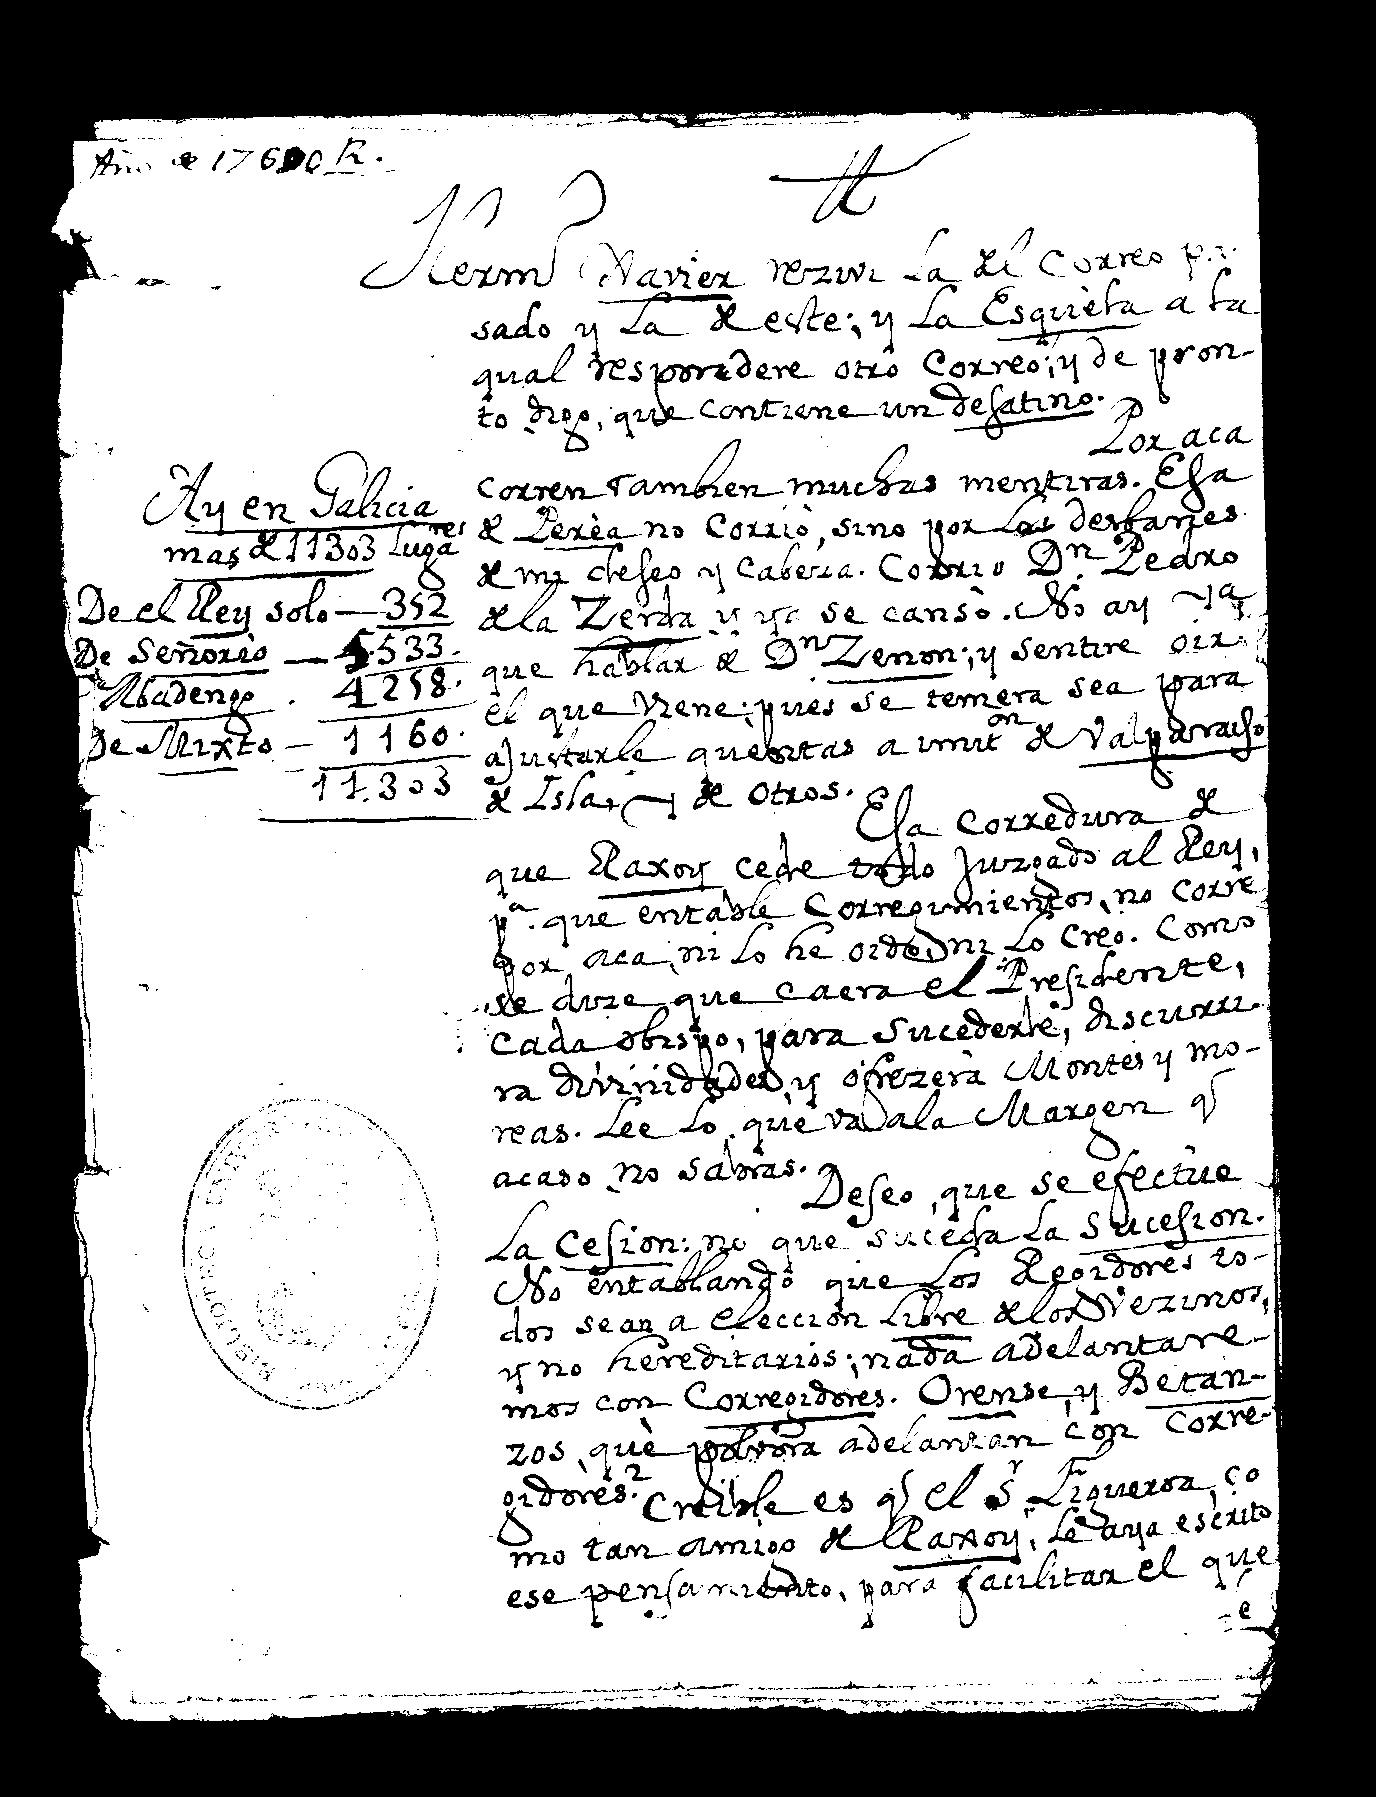 Año de 1760 R.
Herm.o Xavier rezivi la del Correo pa-
sado y la de este; y la Esquèla a la
qual responderè otro Correo; y de pron-
to digo, que contiene un desatino.
Por aca
corren tambien muchas mentiras. Esa
de Perèa no Corriò, sino por los desbanes
de mi deseo y Cabeza. Corrio Dn. Pedro
de la Zerda y ya se cansò. No ay ya
que hablar de Dn Zenon; y sentire oir
el que viene; pues se temera sea para
ajustarle quentas a imiton de Valparaiso
de Isla, y de otros.
Esa corredura de
que Raxoy cede todo Juzgado al Rey,
pa. que entable Corregimientos, no corre
por aca, ni lo he oido, ni lo Creo. Como
se dize que caera el Presidente,
Cada obispo, para sucederle, discurri-
ra divinidades, y ofrezerà Montes y mo-
reas. Lee lo que va a la Margen q
acaso no sabras.
Deseo, que se efectùe
La Cesion: no que suceda la Sucesion.
No entablando que los Regidores to-
dos sean a eleccion libre de los Vezinos,
y no hereditarios; nada adelantare-
mos con Corregidores. Orense, y Betan-
zos, què polvora adelantan con Corre-
gidores?
Creible es q el Sr. Figueroa, co
mo tan amigo de Raxoy, le aya escrito
ese pensamiento, para facilitar el que
e
Ay en Galicia
mas de 11303 Lugares
De el Rey solo — 352
De Señorìo — 5533.
Abadengo . 4258.
De Mixto — 1160.
11.303